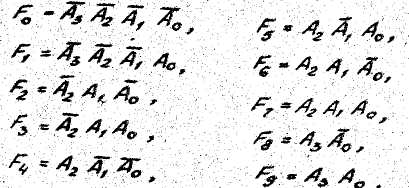 F₀ = A̅₃ A̅₂ A̅₁ A̅₀,
F₁ = A̅₃ A̅₂ A̅₁ A₀,
F₂ = A̅₂ A₁ A̅₀,
F₃ = A̅₂ A₁ A₀,
F₄ = A₂ A̅₁ A̅₀,
F₅ = A₂ A̅₁ A₀,
F₆ = A₂ A₁ A̅₀,
F₇ = A₂ A₁ A₀,
F₈ = A₃ A̅₀,
F₉ = A₃ A₀,